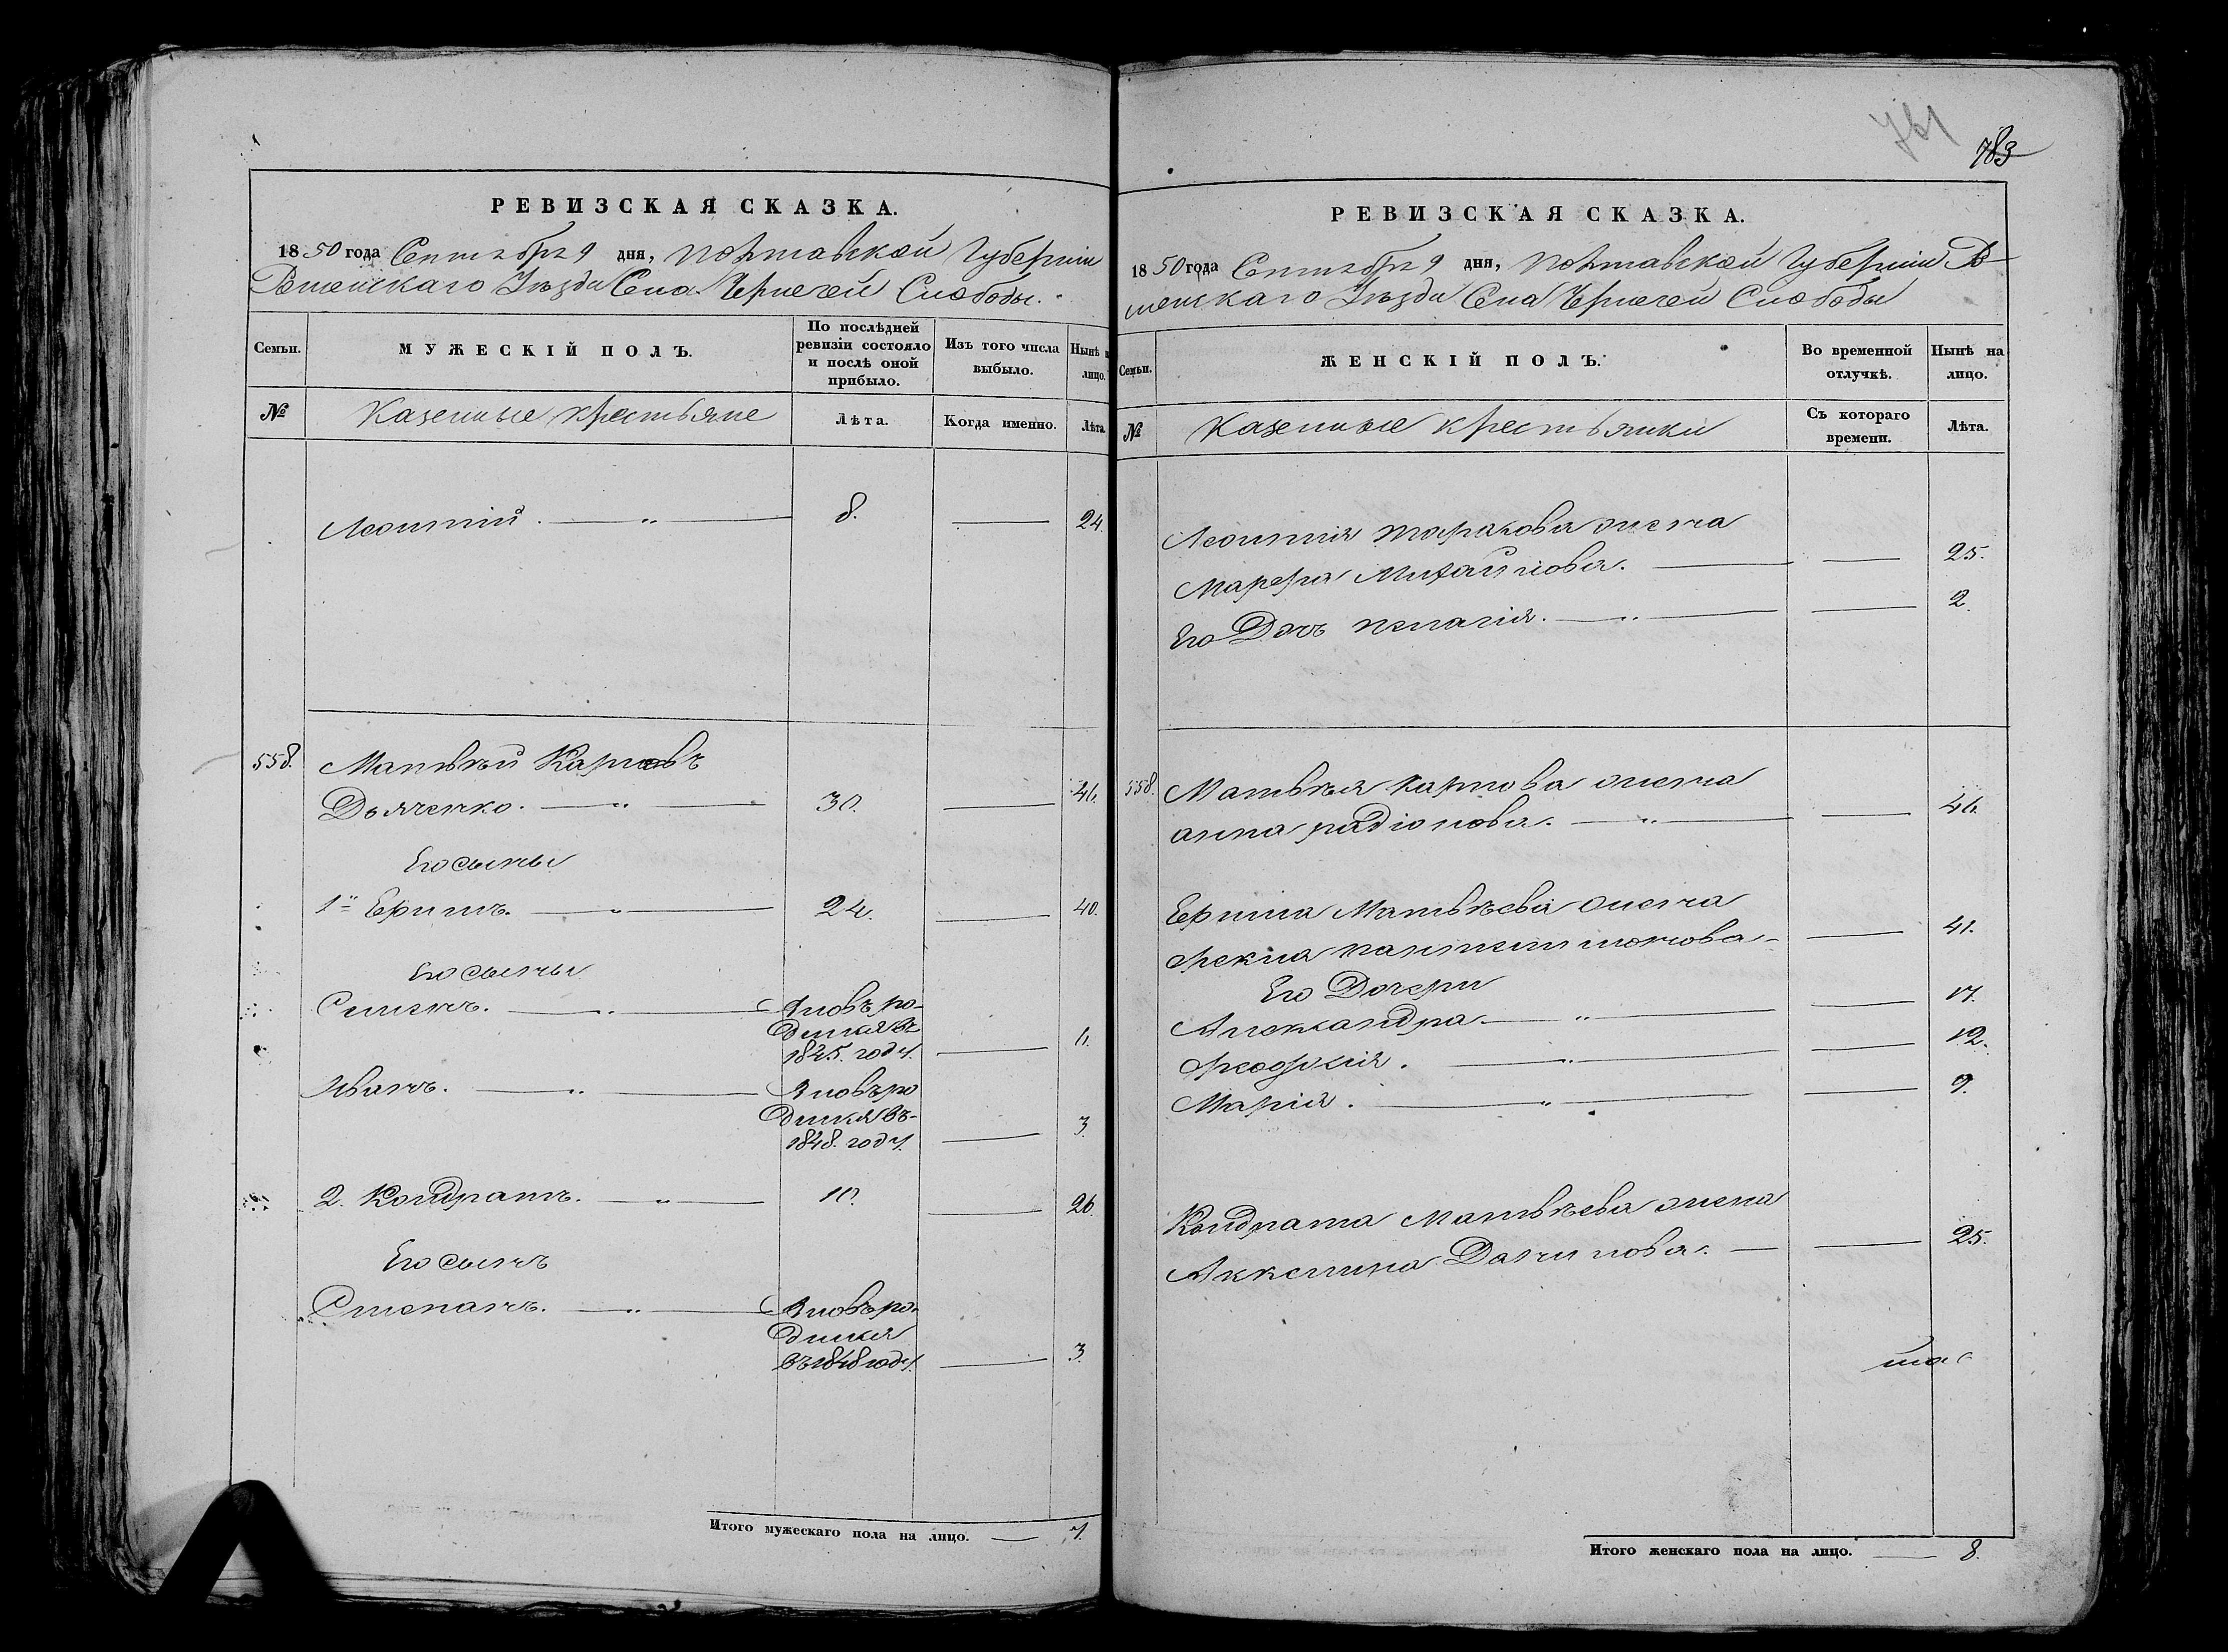 РЕВИЗСКАЯ СКАЗКА.
1850 года Сентября 9 дня, Полтавской Губерніи
Роменскаго Уѣзда Села Чернечей Слободы.
Семьи.
МУЖЕСКІЙ ПОЛЪ.
По послѣдней ревизіи состояло и послѣ оной прибыло.
Изъ того числа выбыло.
Нынѣ на лицо.
№
Казенные крестьяне
Лѣта.
Когда именно.
Лѣта.
Леонтій. — „ — 8. — 24.
558. Матвѣй Карповъ
Дьяченко. — „ — 30. — 46.
Его сыны
1й Ефимъ. — „ — 24. — 40.
Его сыны
Семенъ. — „ — Вновь ро-
дился въ
1845. году. — 6.
Иванъ. — „ — Вновь ро
дился въ-
1848. году. — 3.
2. Кондратъ. — „ — 10. — 26.
Его сынъ
Степанъ. — „ — Вновь ро-
дился
въ 1848 году. — 3.
Итого мужескаго пола на лицо. — 7.
761
783
РЕВИЗСКАЯ СКАЗКА.
1850 года Сентября 9 дня, Полтавской Губерніи Ро
менскаго Уѣзда Села Чернечей Слободы
Семьи.
ЖЕНСКІЙ ПОЛЪ.
Во временной отлучкѣ.
Нынѣ на лицо.
№
Казенные крестьянки
Съ котораго времени.
Лѣта.
Леонтія Тарасова жена
Марфа Михайлова. — — 25.
Его Дочь Пелагія. — „ — — 2.
558. Матвѣя Карпова жена
Анна Радіонова. — „ — — 46.
Ефима Матвѣева жена
Фекла Пантелимонова — — 41.
Его Дочери
Александра — „ — — 17.
Феофкія. — „ — — 12.
Марія. — „ — — 9.
Кондрата Матвѣева жена
Акилина Данилова. — — 25.
Итого женскаго пола на лицо. — 8.